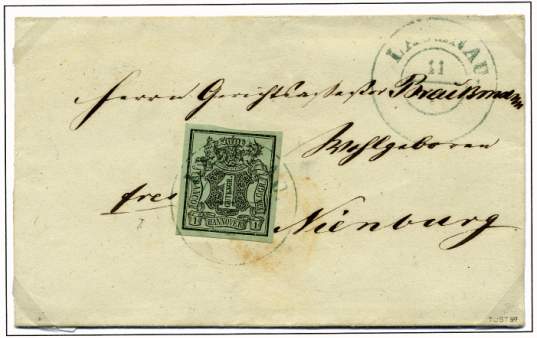 LAUENAU
11
Herrn Gerichtsassessor Brauckmann
Wohlgeboren
frei
Nienburg
1
HANNOVER
1 1